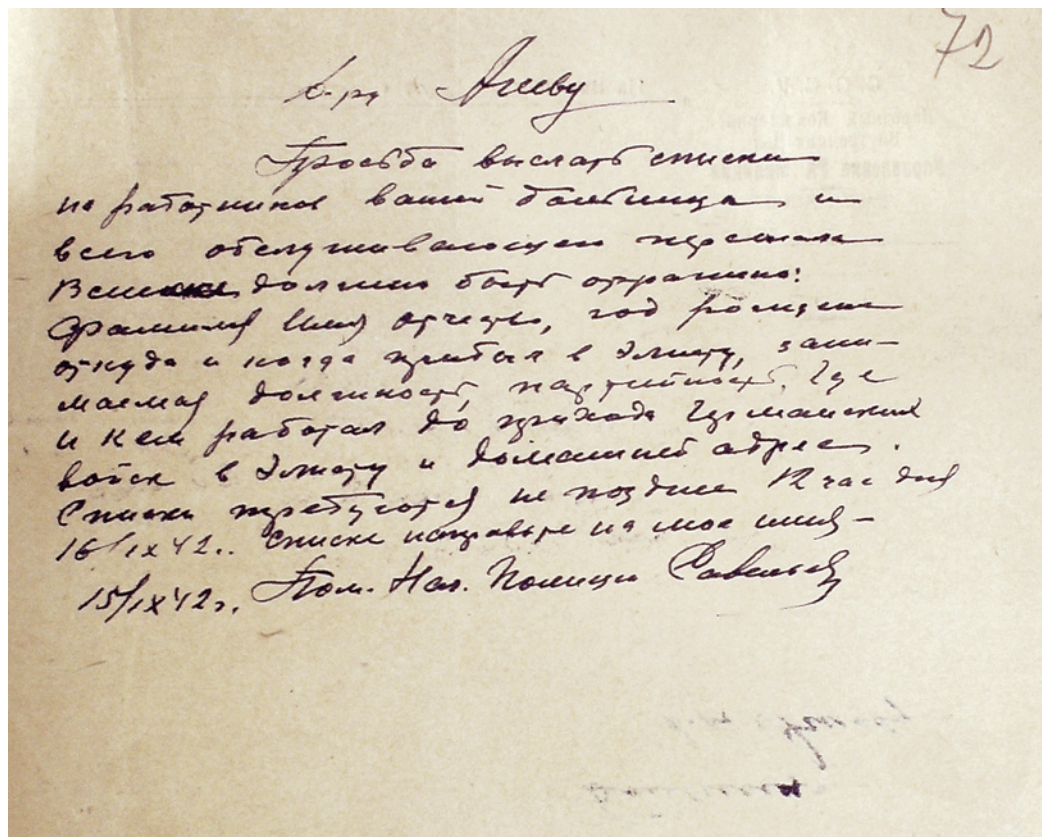 72
Д-ру Агееву
Просьба выслать списки
на работников вашей больницы и
всего обслуживающего персонала
В списке должно быть отражено:
Фамилия Имя отчество, год рождения
откуда и когда прибыл в Элисту, зани-
маемая должность, партийность, где
и кем работал до прихода германских
войск в Элисту и домашний адрес.
Списки требуются не позднее 12 час дня
16/IX 42.. списки направьте на мое имя –
15/IX 42 г. Пом. Нач. Полиции Савельев